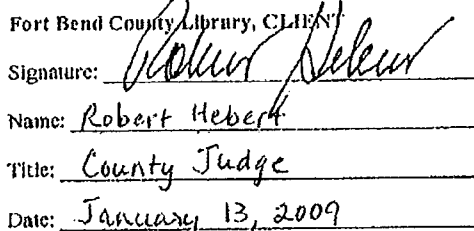 Fort Bend County Library, CLIENT
Signature: Robert Hebert
Name: Robert Hebert
Title: County Judge
Date: January 13, 2009